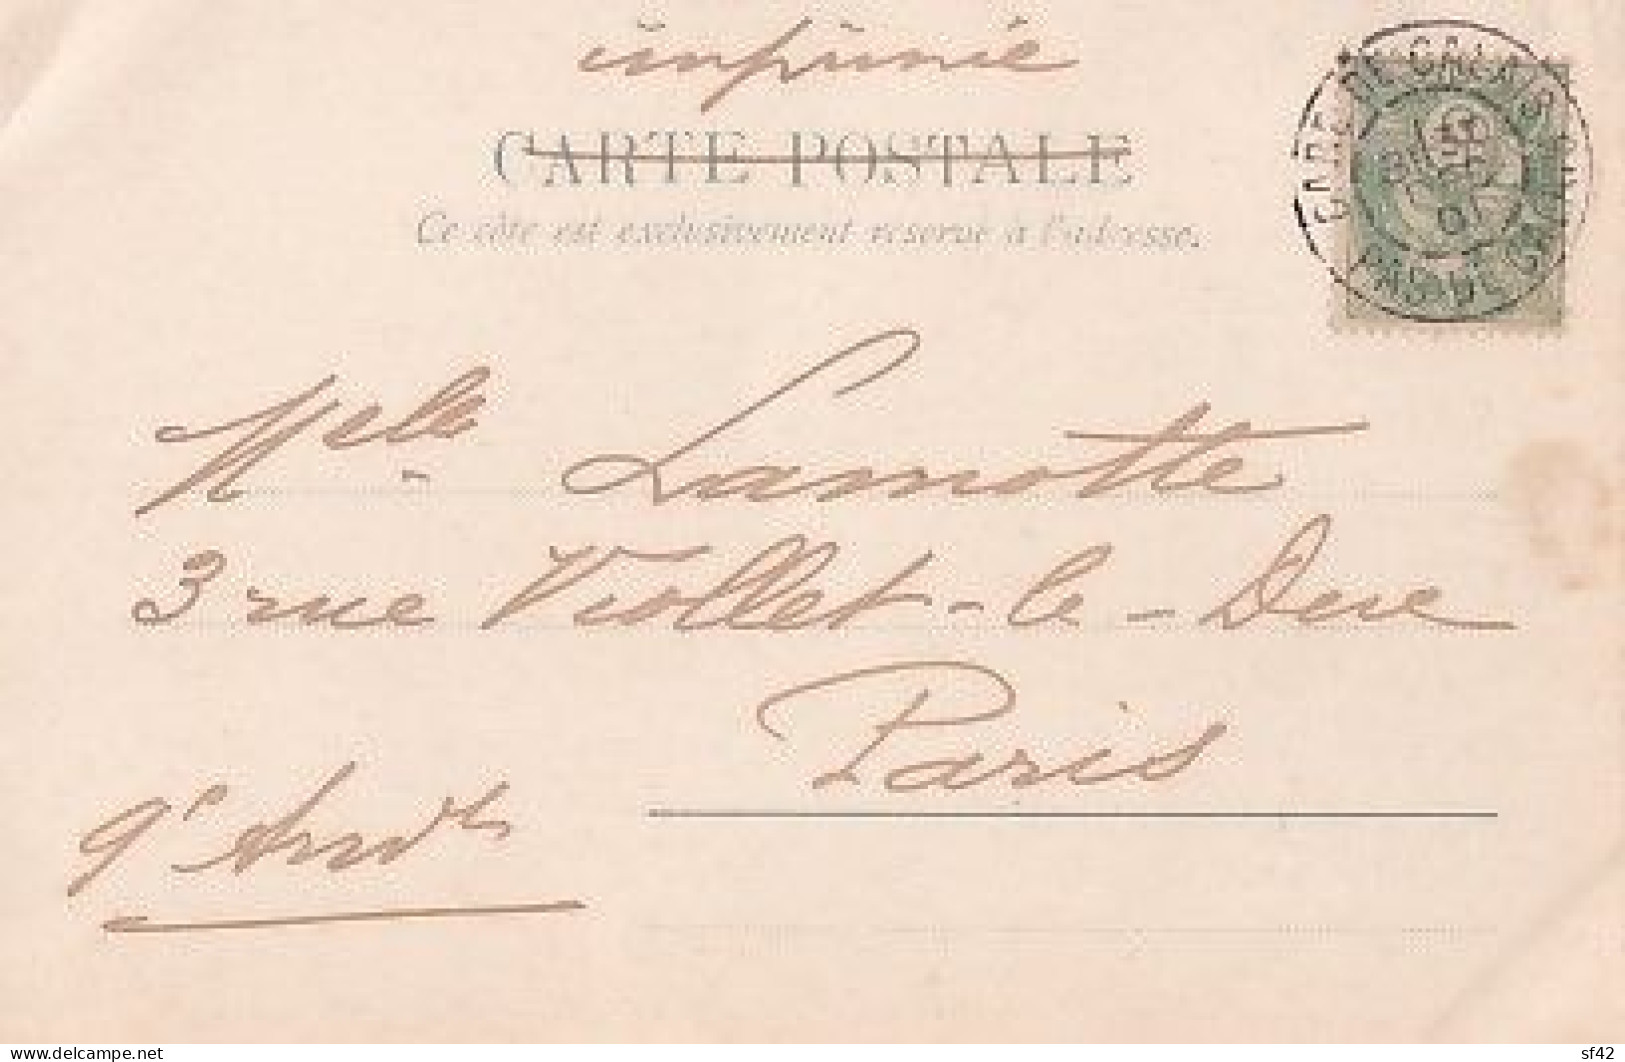 imprimé
CARTE POSTALE
Ce côté est exclusivement réservé à l'adresse.
GARE DE CALAIS
PAS-DE-CALAIS
01
Melle Lamotte
3 rue Viollet-le-Duc
Paris
9e Arrdt
delcampe.net
sf42